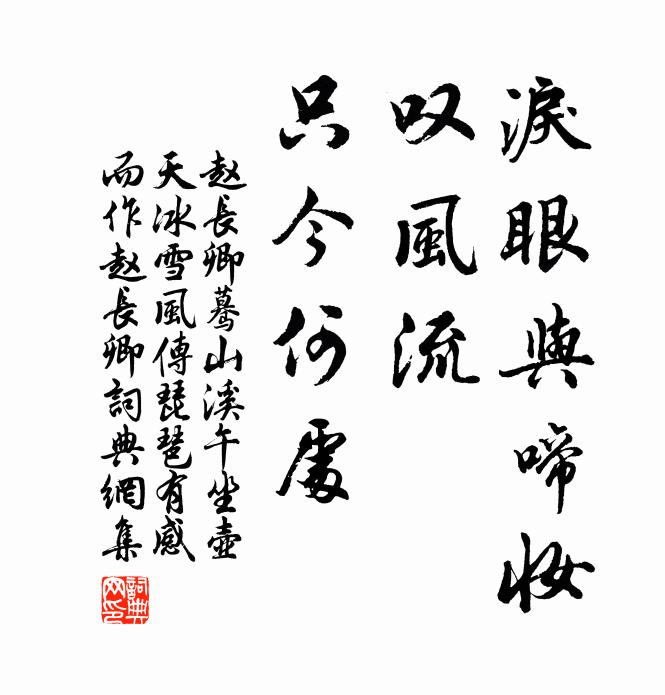 淚眼與啼妝
叹風流
只今何處
赵長卿驀山溪午坐壺
天冰雪風傳琵琶有感
而作赵長卿詞典網集
詞典
网印